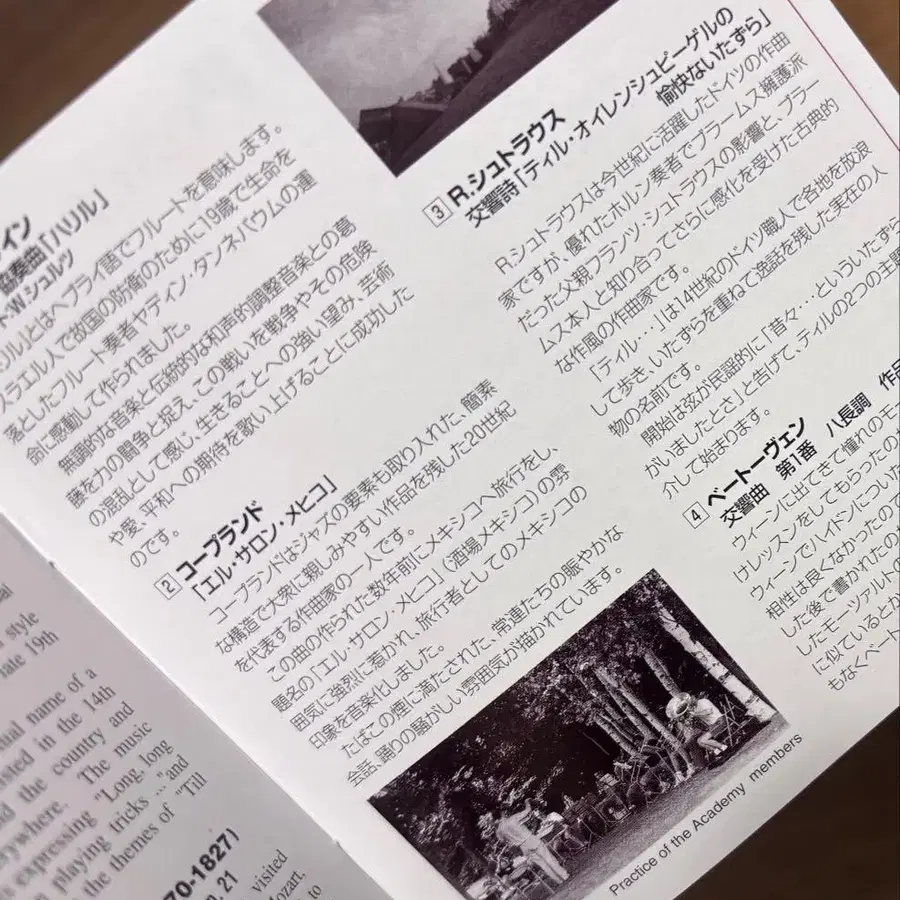 イン
協奏曲「ハリル」
W.シュルツ
リル」とはヘブライ語でフルートを意味します。
スラエル人で故国の防衛のために19歳で生命を
落としたフルート奏者ヤディン・タンネバウムの運
命に感動して作られました。
無調的な音楽と伝統的な和声的調整音楽との葛
藤を力の闘争と捉え、この戦いを戦争やその危険
の混乱として感じ、生きることへの強い望み、芸術
や愛、平和への期待を歌い上げることに成功した
のです。
2 コープランド
「エル・サロン・メヒコ」
コープランドはジャズの要素も取り入れた、簡素
な構造で大衆に親しみやすい作品を残した20世紀
を代表する作曲家の一人です。
この曲の作られた数年前にメキシコへ旅行をし、
題名の「エル・サロン・メヒコ」(酒場メキシコ)の雰
囲気に強烈に惹かれ、旅行者としてのメキシコの
印象を音楽化しました。
たばこの煙に満たされた、常連たちの賑やかな
会話、踊りの騒がしい雰囲気が描かれています。
3 R.シュトラウス
交響詩「ティル・オイレンシュピーゲルの
愉快ないたずら」
R.シュトラウスは今世紀に活躍したドイツの作曲
家ですが、優れたホルン奏者でブラームス擁護派
だった父親フランツ・シュトラウスの影響と、ブラー
ムス本人と知り合ってさらに感化を受けた古典的
な作風の作曲家です。
「ティル・・・」は14世紀のドイツ職人で各地を放浪
して歩き、いたずらを重ねて逸話を残した実在の人
物の名前です。
開始は弦が民謡的に「昔々・・・といういたずら
がいましたとさ」と告げて、ティルの2つの主題
介して始まります。
4 ベートーヴェン
交響曲 第1番 ハ長調 作品
ウィーンに出てきて憧れのモー
けレッスンをしてもらったのか
ウィーンでハイドンについた
相性は良くなかったので
した後で書かれたの
したモーツァルトの
に似ているとか
もなくベート
Practice of the Academy members
style
late 19th
tual name of a
isted in the 14th
d the country and
erywhere. The music
s expressing "Long, long
playing tricks ..." and
the themes of "Till
70-1827)
21
visited
Mozart.
to